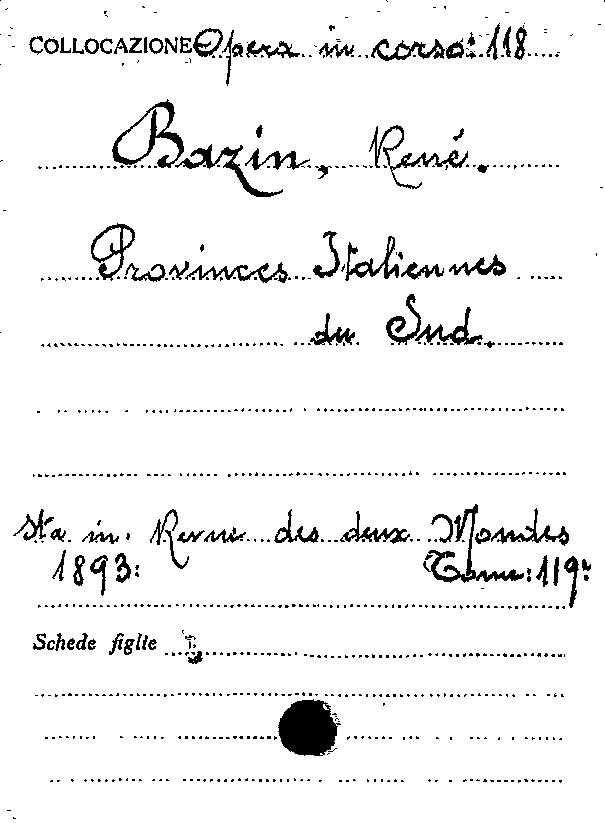 COLLOCAZIONE Opera in corso: 118
Bazin, René.
Provinces Italiennes
du Sud.
Sta in. Revue des deux Mondes
1893: Tome: 119º
Schede figlie